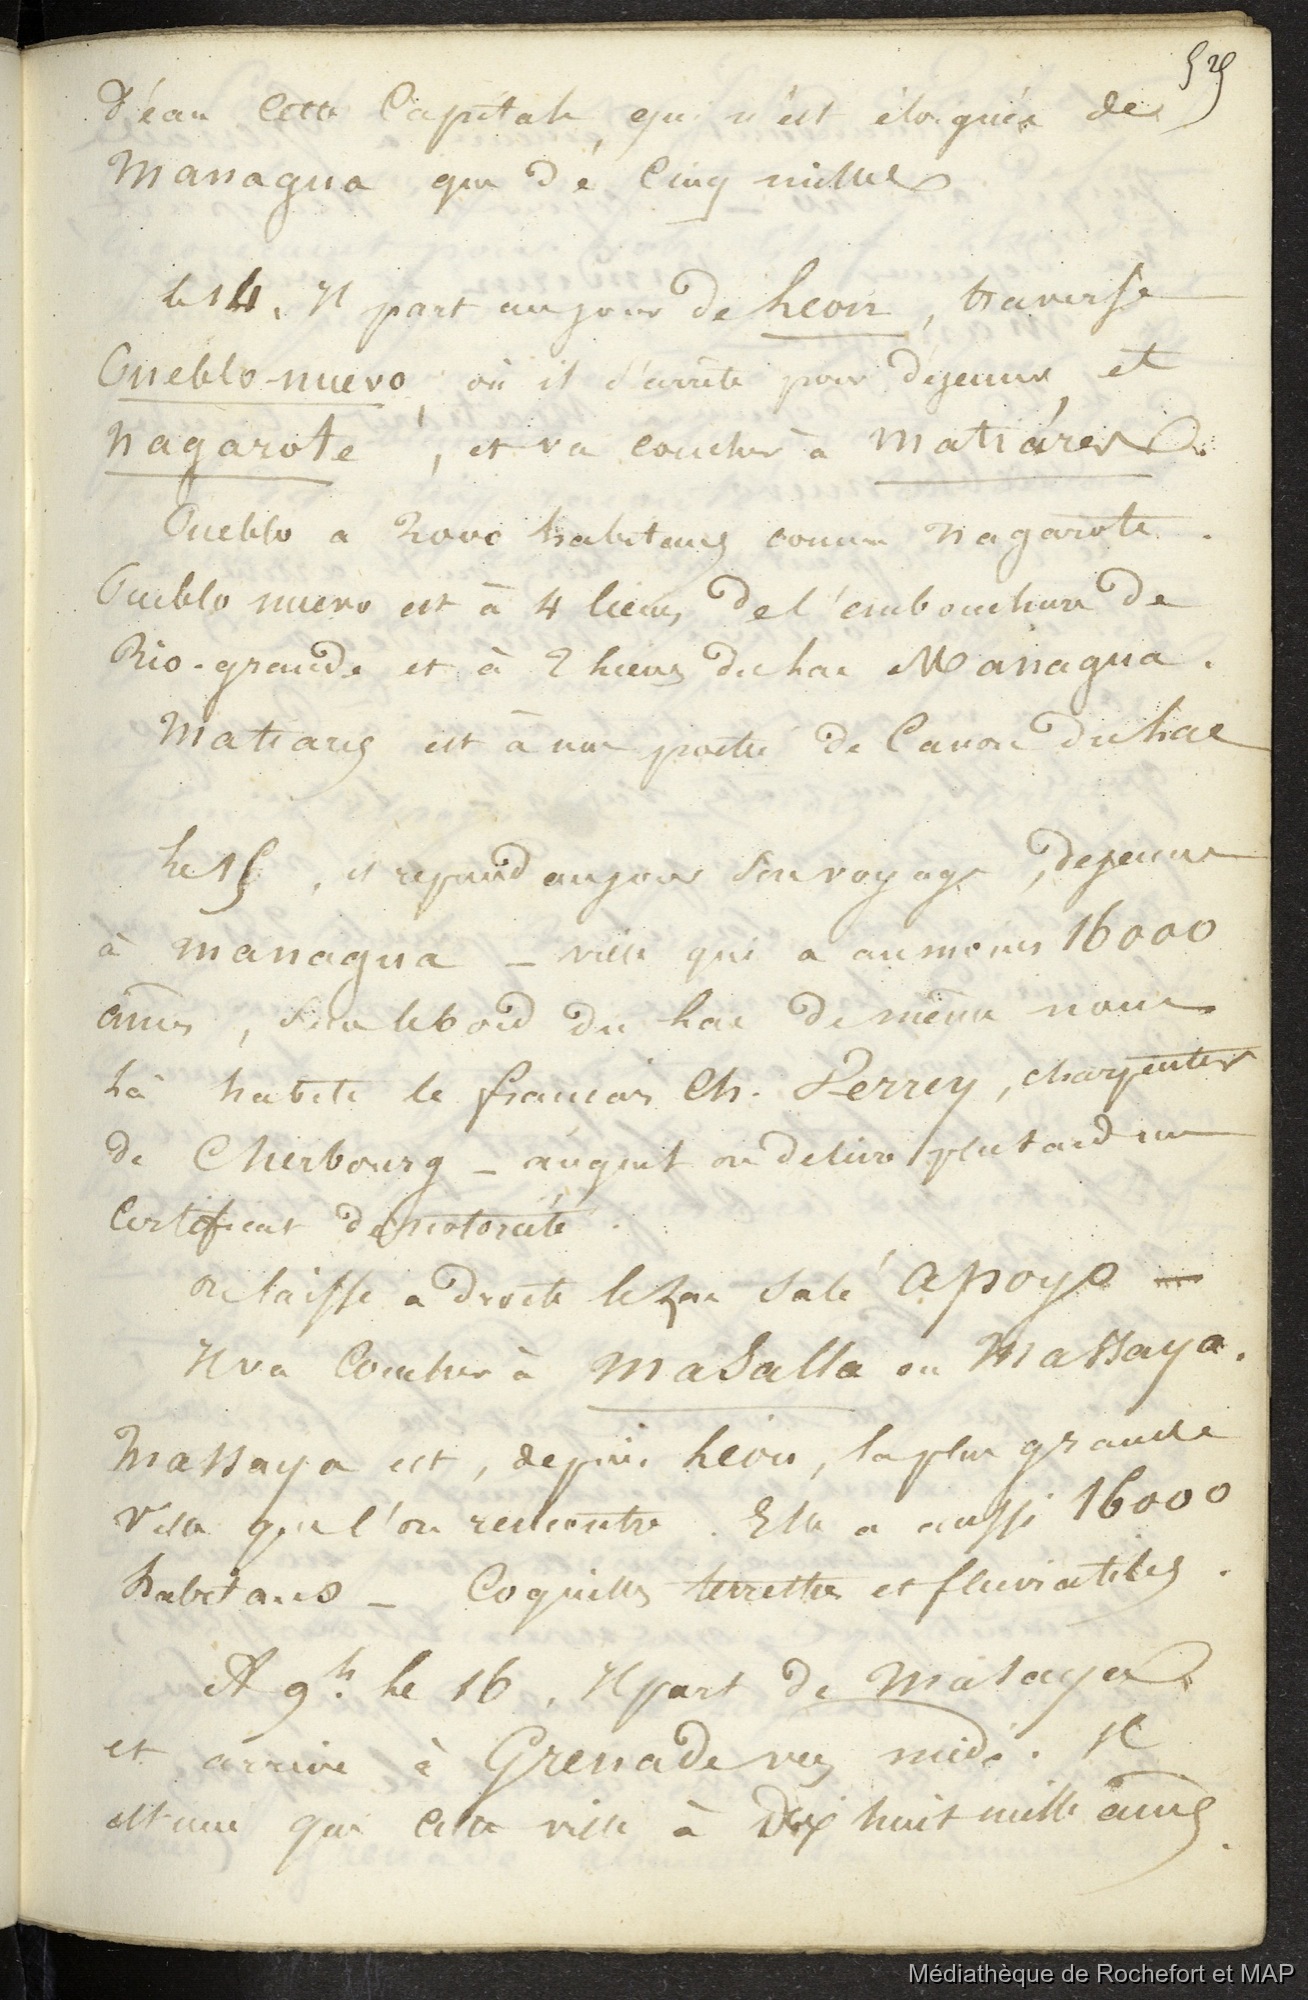 525
d'eau cette Capitale qui n'est éloignée de
Managua que dé Cinq milles
le 14. Il part au jour de Leon, traverse
Pueblo-nuevo, où il s'arrête pour déjeuner, et
nagarote, et va coucher à matiáres.
Pueblo a 2000 habitans comme nagarote.
Pueblo nuevo est à 4 lieues de l'embouchure de
Rio-grande et à 2 lieues du Lac Managua.
Matiares est à une portée de Canon du Lac
Le 15, il reprend au jour son voyage, dejeune
à managua _ ville qui a au moins 16000
ames, sur le bord du Lac de même nom
Là habite le français Ch. Perrey, charpentier
de Cherbourg _ auquel on délivre plus tard un
Certificat de notoriété.
on laisse a droite le Lac Salé apoyo —
Il va Coucher à Masalla ou Massaya.
Massaya est, depuis Léon, la plus grande
Ville que l'on rencontre. Elle a aussi 16000
habitans _ Coquilles terrestres et fluviatiles.
A 9h. Le 16, Il part de Masaya
et arrive à Grenade vers midi. Il
estime que Cette ville à dix huit mille ames.
Médiathèque de Rochefort et MAP